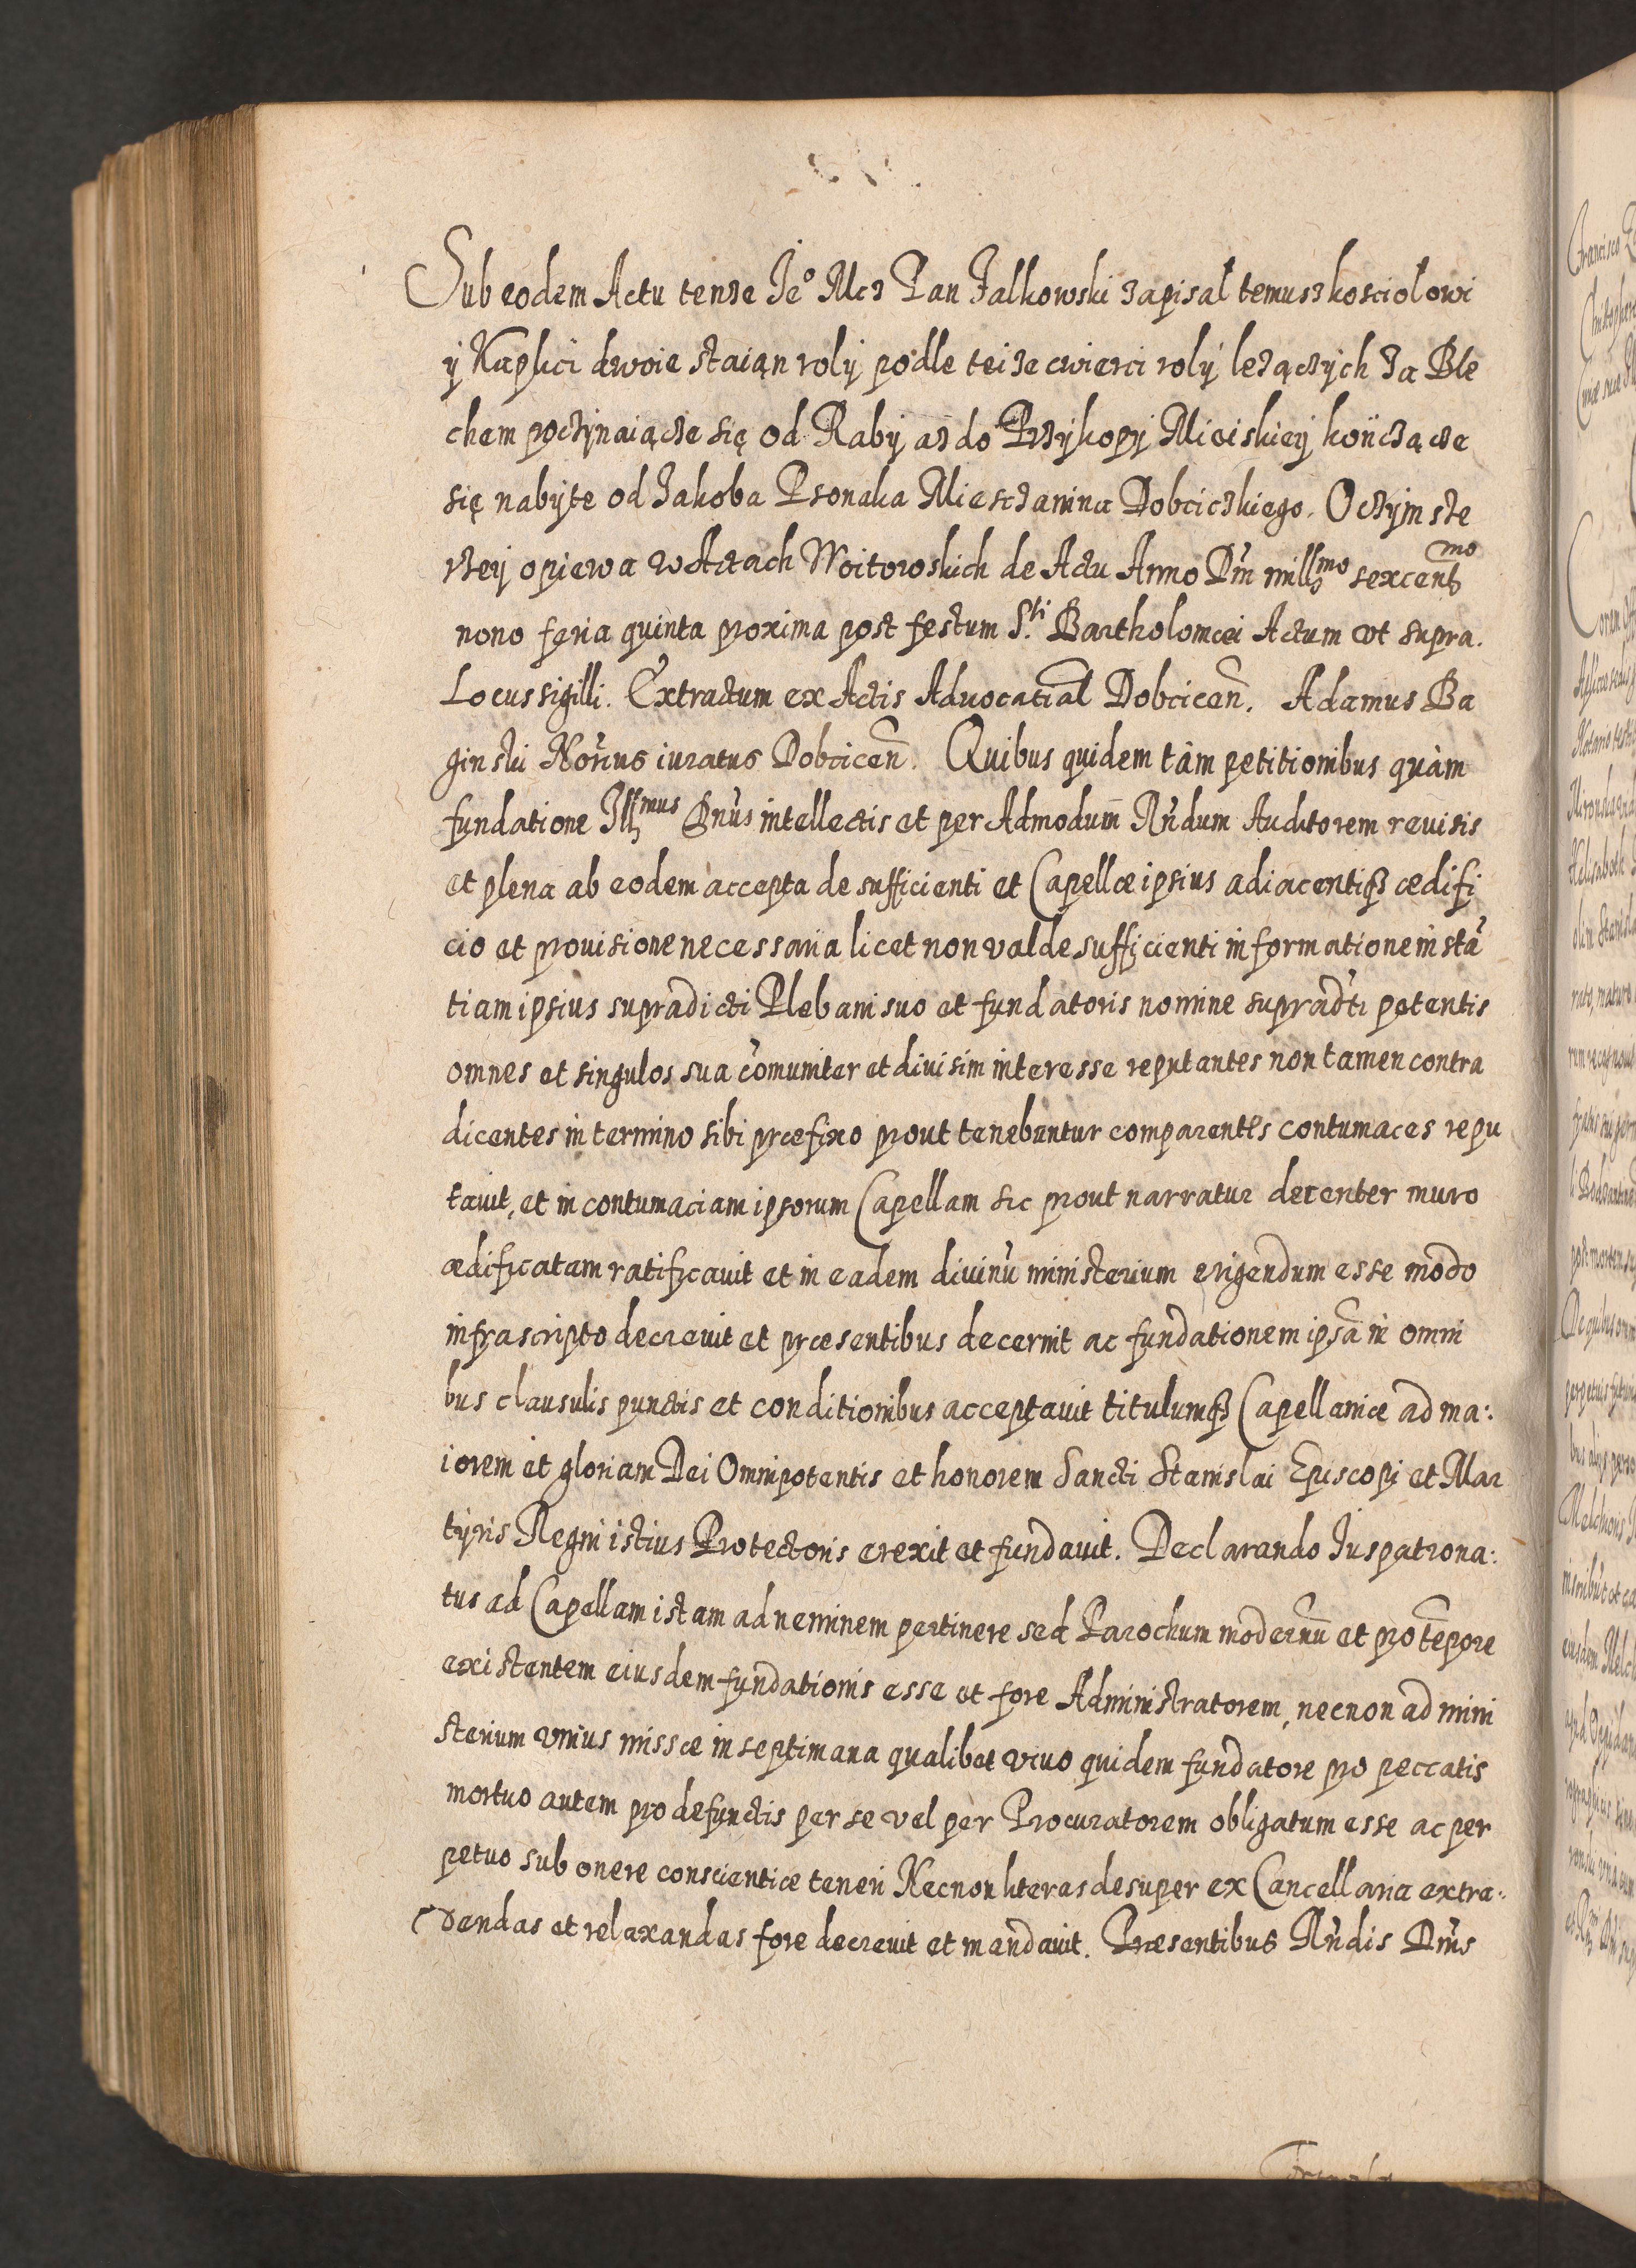 Sub eodem Actu tenze Je° Mcz Pan Jalkowski zapisal temusz kosciolowi
ÿ Kaplici dwoie staiąn rolÿ podle teize cwierci rolÿ leżączÿch za Ble
chem poczÿnaiącze się od Rabÿ az do Przÿkopÿ Mieiskieÿ kończącze
się nabÿte od Jakoba Psonaka Miesczanina Dobcickiego. O czÿm sze
rzeÿ opiewa w Actach Woitowskich de Actu Anno Dni mill̃mo sexcentmo
nono feria quinta proxima post festum S.ti Bartholomæi Actum vt supra.
Locus sigilli. Extractum ex Actis Aduocatial Dobcicen̄. Adamus Ba
ginski No͞rius iuratus Dobcicen̄. Quibus quidem tàm petitionibus quàm
fundatione Illmus Dn͞us intellectis et per Admodum R͞ndum Auditorem reuisis
et plena ab eodem accepta de sufficienti et Capellæ ipsius adiacentiqȝ ædifi
cio et prouisione necessaria licet non valde sufficienti informatione instā
tiam ipsius supradicti Plebani suo et fundatoris nomine supradti petentis
omnes et singulos sua co͞muniter et diuisim interesse reputantes non tamen contra
dicentes in termino sibi præfixo prout tenebantur comparentes contumaces repu
tauit, et in contumaciam ipsorum Capellam sic prout narratur decenter muro
ædificatam ratificauit et in eadem diuinū ministerium erigendum esse modo
infrascripto decreuit et præsentibus decernit ac fundationem ipsā in omni
bus clausulis punctis et conditionibus acceptauit titulumqȝ Capellaniæ ad ma:
iorem et gloriam Dei Omnipotentis et honorem Sancti Stanislai Episcopi et Mar
tÿris Regni istius Protectoris erexit et fundauit. Declarando Iuspatrona:
tus ad Capellam istam ad neminem pertinere sed Parochum modernū et pro tēpore
existentem eiusdem fundationis esse et fore Administratorem, necnon ad mini
sterium vnius missæ in septimana qualibet viuo quidem fundatore pro peccatis
mortuo autem pro defunctis per se vel per Procuratorem obligatum esse ac per
petuo sub onere conscientiæ teneri Necnon literas desuper ex Cancellaria extra:
dendas et relaxandas fore decreuit et mandauit. Præsentibus R͞ndis Dn͞is